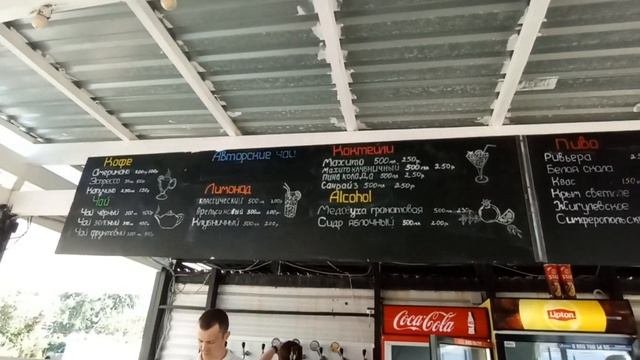 Кофе
Американо
Эспрессо
Капучино
Чай
Чай чёрный
Чай зелёный
Чай фруктовый
Авторские чаи
Лимонад
классический 500 мл
500
Клубничный 500 мл 200р
Коктейли
Махито 500 мл 250р
Махито клубничный 500 мл 250р
Пина колада 500 мл 250р
Санрайз 500 мл 250р
Alcohol
Медовуха гранатовая 500 мл
Сидр яблочный 500 мл 200р
Пиво
Ривьера
Белая скала
Квас 150
Крым светлое
Жигулевское
Симферопольск
Coca-Cola
Lipton